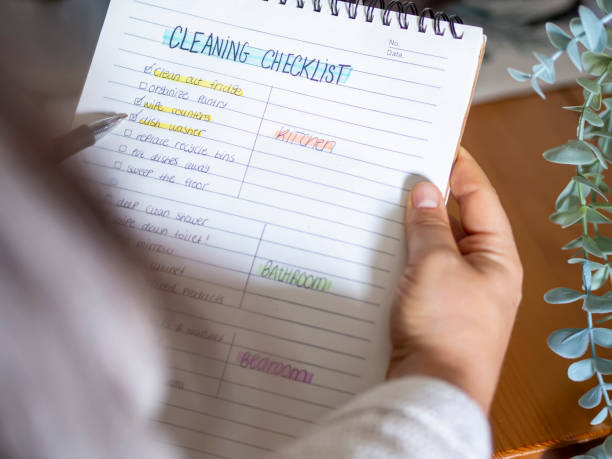 No.
Date.
CLEANING CHECKLIST
☑ clean out fridge
☐ organize pantry
☑ wipe counters
☑ dish washer
☐ replace recycle bins
☐ put dishes away
☐ sweep the floor
KITCHEN
deep clean shower
down toilet!
products
BATHROOM
BEDROOM